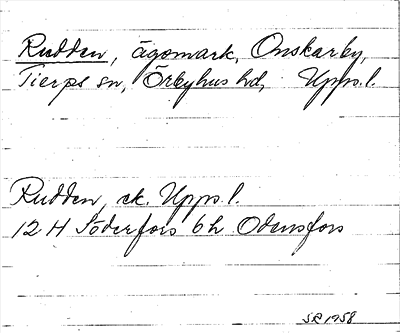 Rudden, ägomark, Onskarby,
Tierps sn, Örbyhus hd, Upps.l.
Rudden, ek. Upps.l.
12 H Söderfors 6h Odensfors
SR 1958